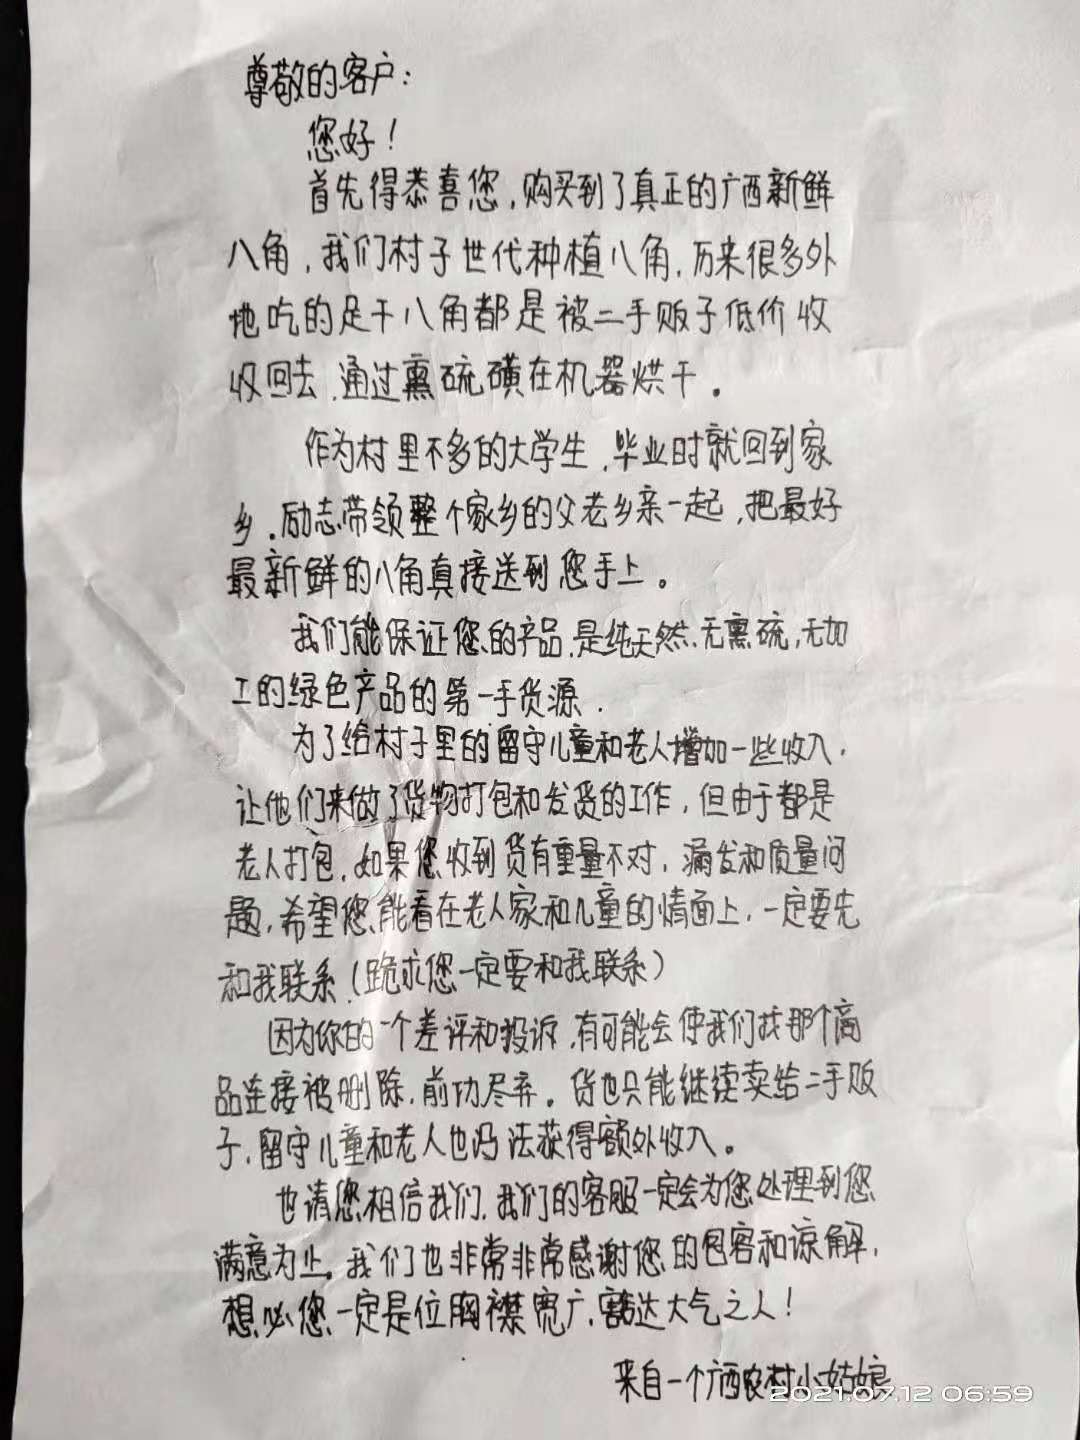 尊敬的客户：
您好！
首先得恭喜您，购买到了真正的广西新鲜
八角，我们村子世代种植八角，历来很多外
地吃的足干八角都是被二手贩子低价收
收回去，通过熏硫磺在机器烘干。
作为村里不多的大学生，毕业时就回到家
乡。励志带领整个家乡的父老乡亲一起，把最好
最新鲜的八角真接送到您手上。
我们能保证您的产品，是纯天然，无熏硫，无加
工的绿色产品的第一手货源．
为了给村子里的留守儿童和老人增加一些收入，
让他们来做了货物打包和发货的工作，但由于都是
老人打包，如果您收到货有重量不对，漏发和质量问
题，希望您能看在老人家和儿童的情面上，一定要先
和我联系（跪求您一定要和我联系）
因为你的一个差评和投诉，有可能会使我们找那个商
品连接被删除，前功尽弃。货也只能继续卖给二手贩
子，留守儿童和老人也沒法获得额外收入。
也请您相信我们，我们的客服一定会为您处理到您
满意为止。我们也非常非常感谢您的包容和谅解，
想必您一定是位胸襟宽广，豁达大气之人！
来自一个广西农村小姑娘
2021.07.12 06:59